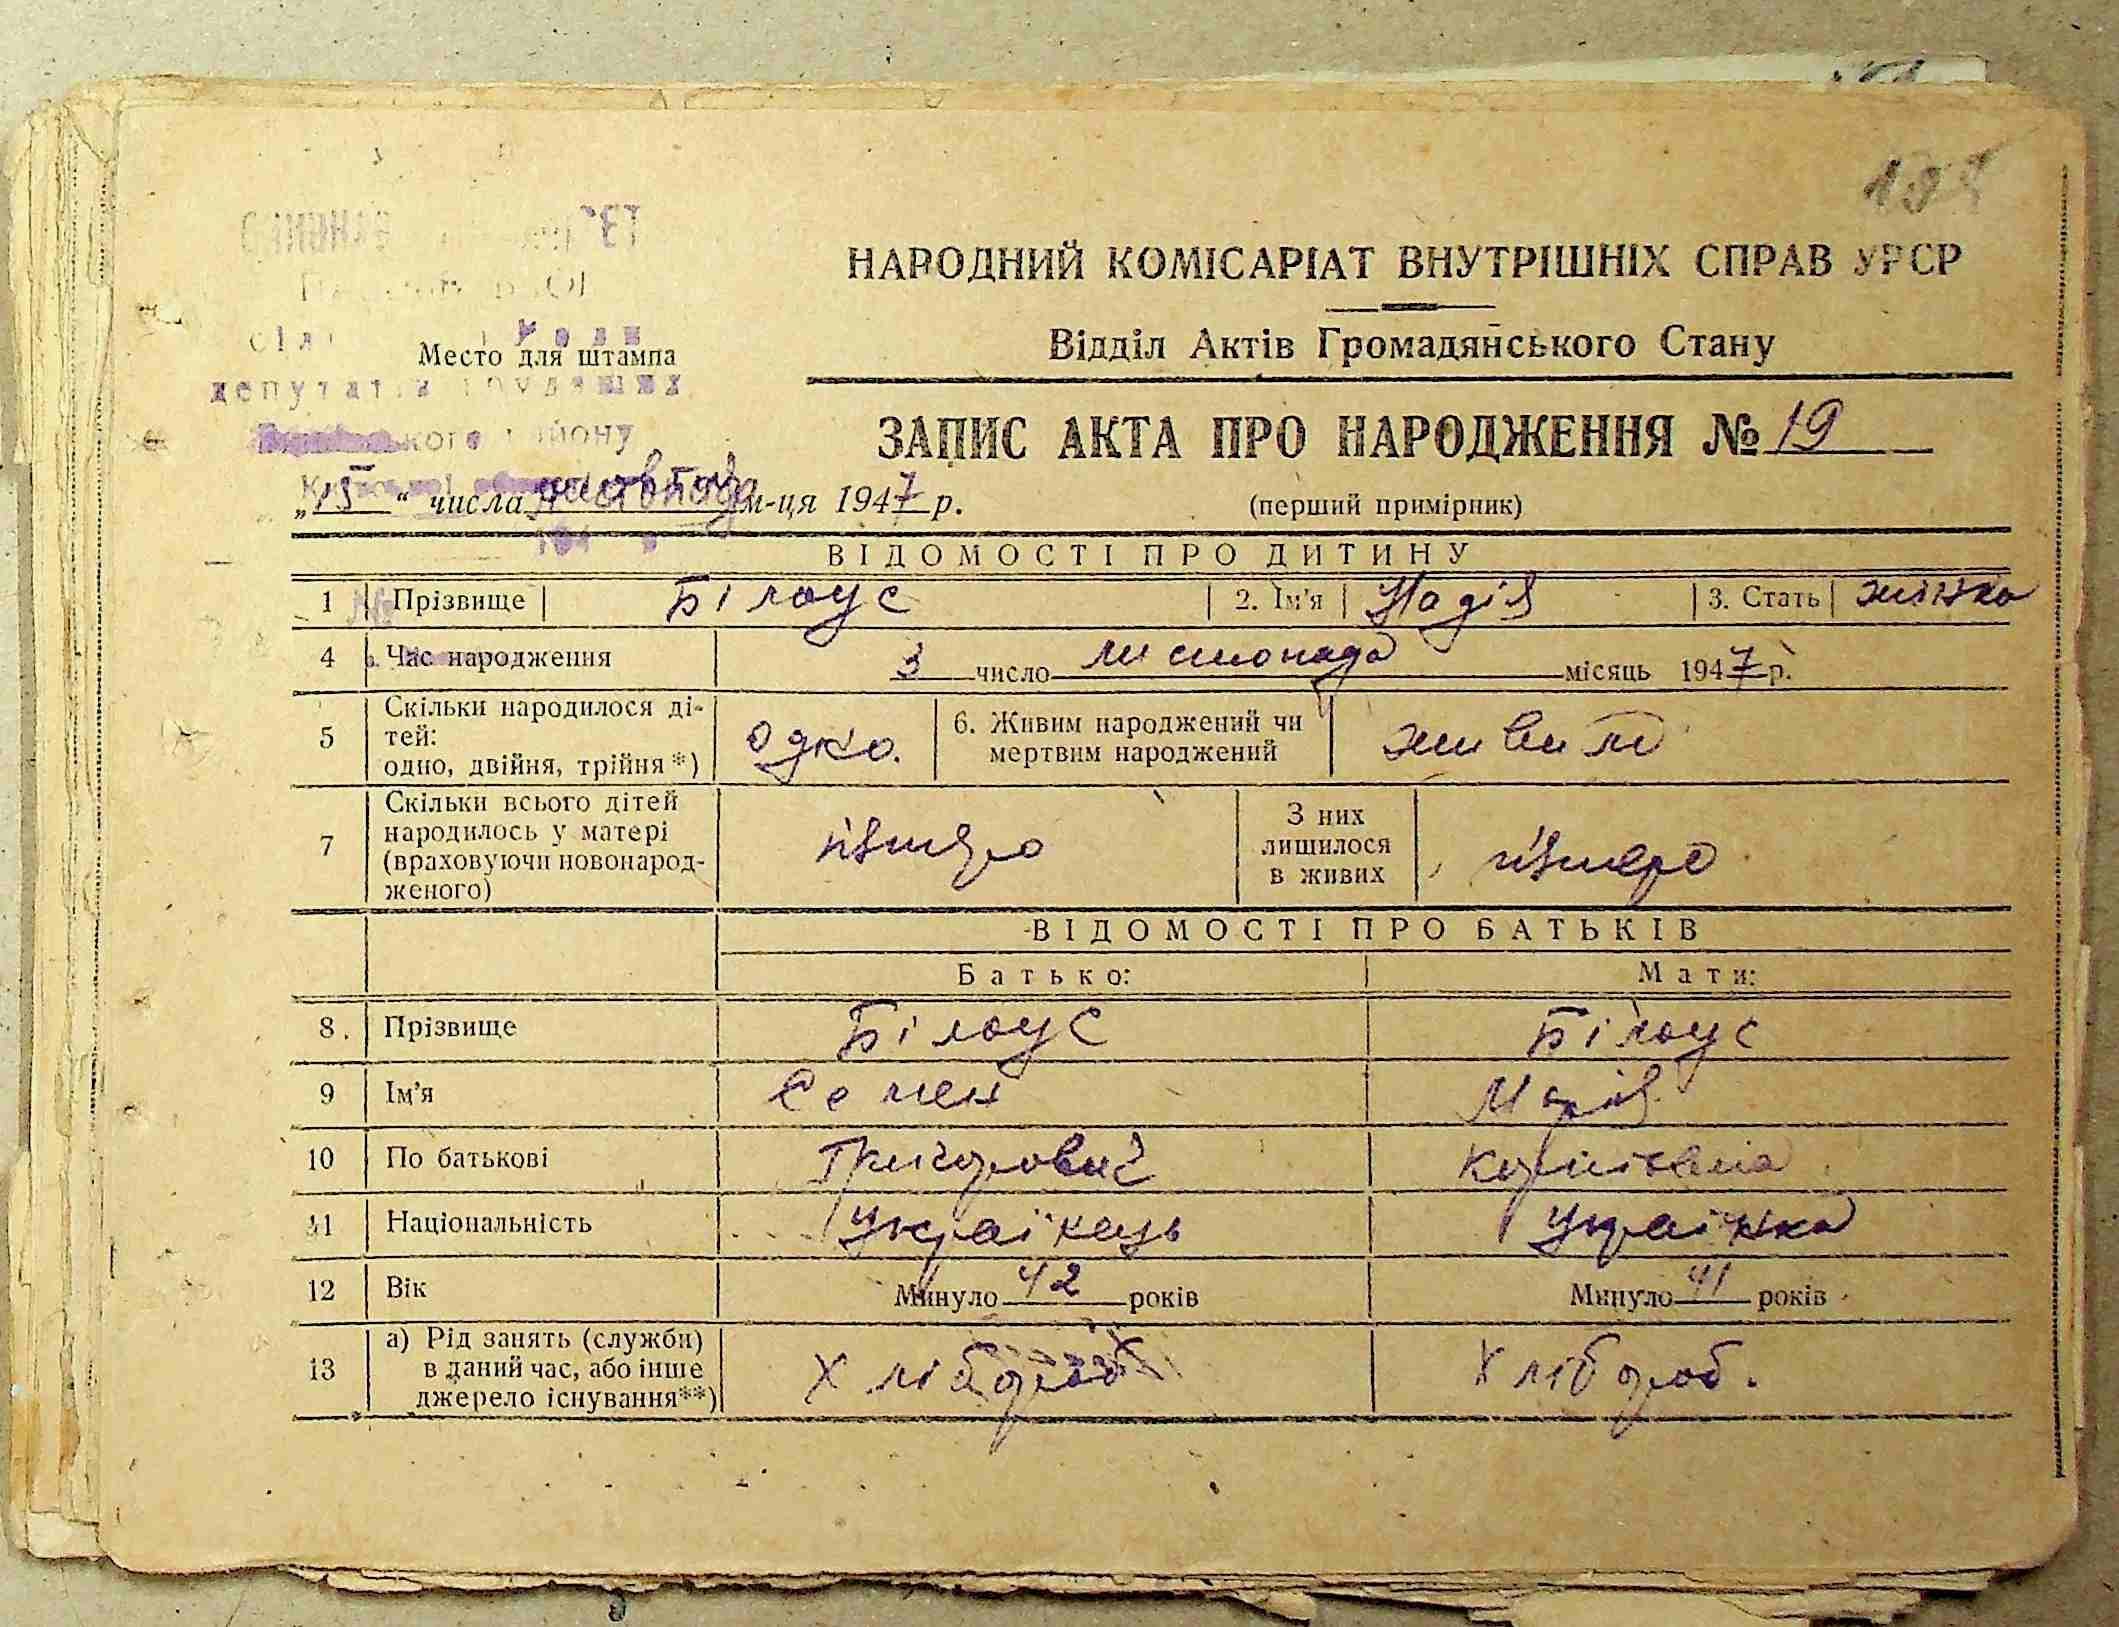 НАРОДНИЙ КОМІСАРІАТ ВНУТРІШНІХ СПРАВ УРСР
Відділ Актів Громадянського Стану
Место для штампа
депутатів трудящих
ЗАПИС АКТА ПРО НАРОДЖЕННЯ № 19
„15“ числа листопада м-ця 1947 р. (перший примірник)
ВІДОМОСТІ ПРО ДИТИНУ
1 Прізвище Білоус 2. Ім'я Надія 3. Стать жінка
4 Час народження 3 число листопада місяць 1947 р.
5 Скільки народилося дітей: одно, двійня, трійня*) одно. 6. Живим народжений чи мертвим народжений живим
7 Скільки всього дітей народилось у матері (враховуючи новонародженого) п'ятеро З них лишилося в живих п'ятеро
ВІДОМОСТІ ПРО БАТЬКІВ
Батько: Мати:
8. Прізвище Білоус Білоус
9 Ім'я Семен Марія
10 По батькові Григорович
11 Національність Українець Українка
12 Вік Минуло 42 років Минуло 41 років
13 а) Рід занять (служби) в даний час, або інше джерело існування**) Хлібороб Хлібороб.